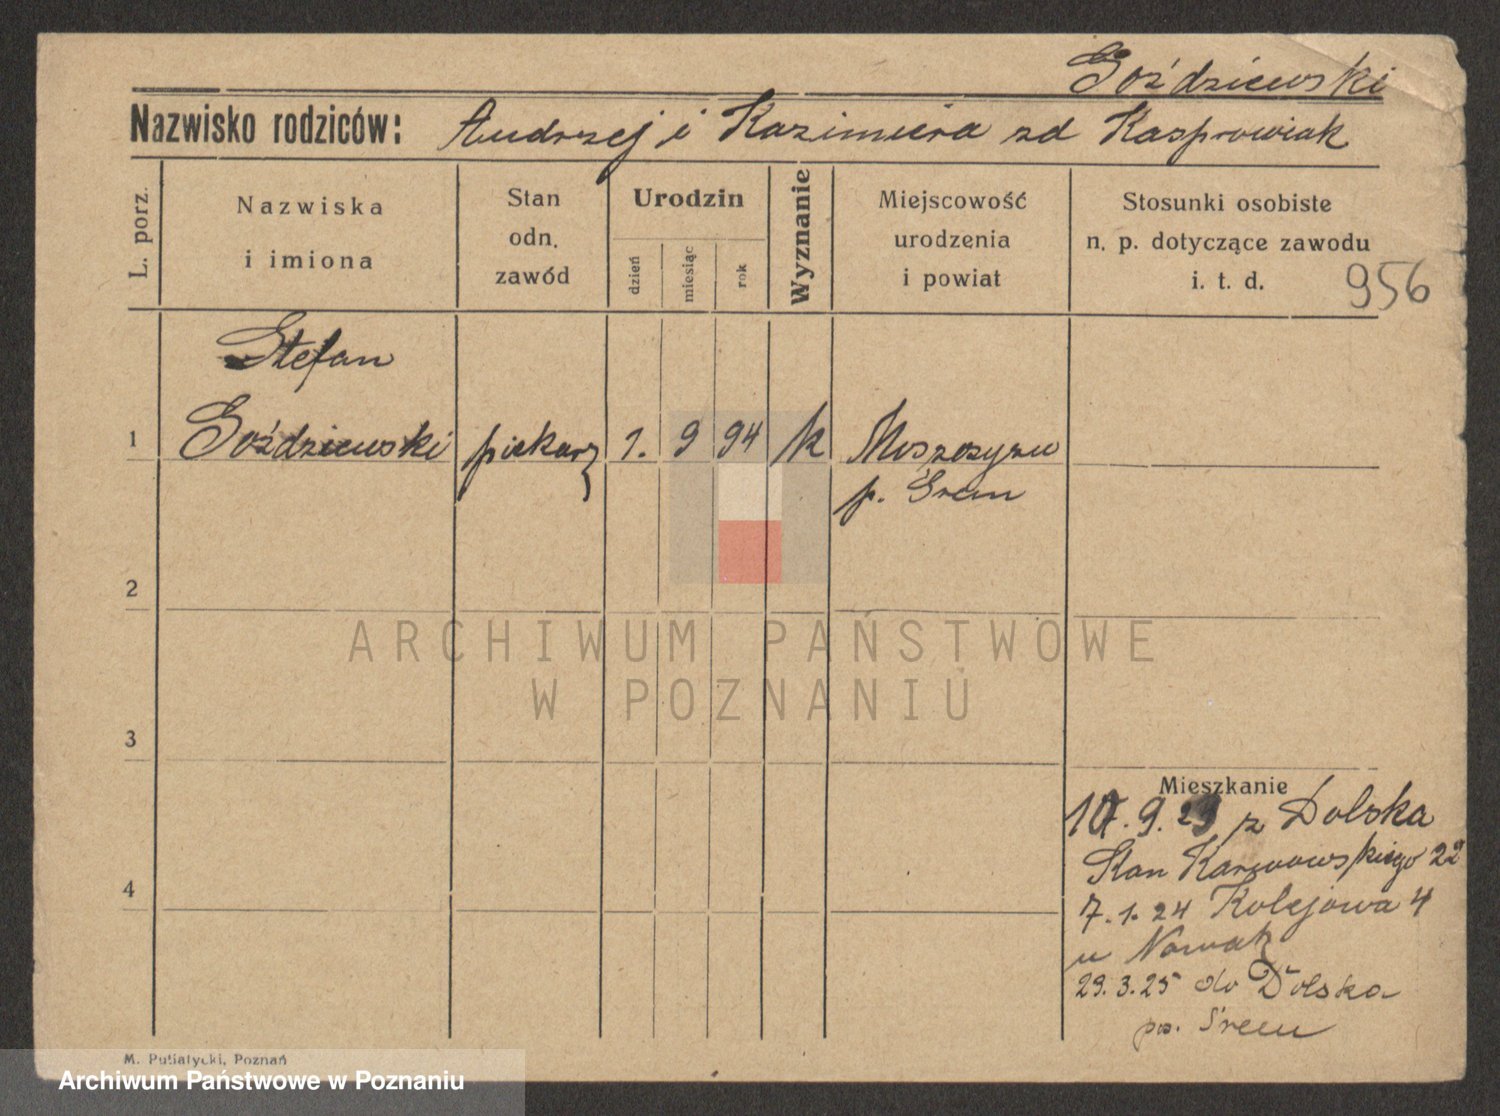 Goździewski
Nazwisko rodziców: Andrzej i Kazimiera zd Kasprowiak
L. porz.
Nazwiska
i imiona
Stan
odn.
zawód
Urodzin
dzień
miesiąc
rok
Wyznanie
Miejscowość
urodzenia
i powiat
Stosunki osobiste
n. p. dotyczące zawodu
i. t. d.
956
Stefan
1 Goździewski piekarz 1. 9 94 k
p. Śrem
2
ARCHIWUM PAŃSTWOWE
W POZNANIU
3
Mieszkanie
9. 23 z Dolska
22
4
7. 1. 24 Kolejowa 4
u Nowak
29. 3. 25 do Dolska
po. Śrem
M. Putiatycki, Poznań
Archiwum Państwowe w Poznaniu